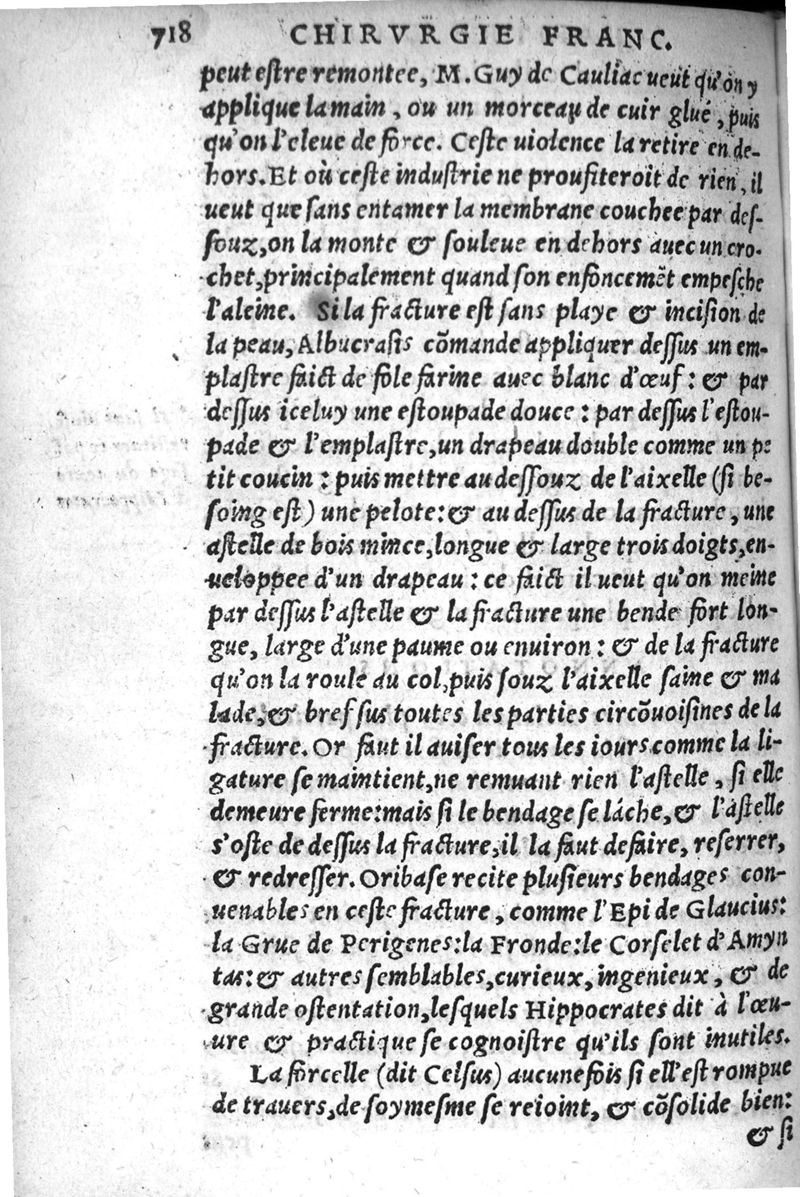 718 CHIRVRGIE FRANC.
peut eſtre remontee, M. Guy de Cauliac ueut qu'on y
applique la main, ou un morceau de cuir glué, puis
qu'on l'eleue de force. Ceſte uiolence la retire en de-
hors. Et où ceſte induſtrie ne proufiteroit de rien, il
ueut que ſans entamer la membrane couchee par deſ-
ſouz, on la monte & ſouleue en dehors auec un cro-
chet, principalement quand ſon enfoncemẽt empeſche
l'aleine. Si la fracture eſt ſans playe & inciſion de
la peau, Albucraſis cõmande appliquer deſſus un em-
plaſtre faict de fole farine auec blanc d'œuf: & par
deſſus iceluy une eſtoupade douce: par deſſus l'eſtou-
pade & l'emplaſtre, un drapeau double comme un pe
tit coucin: puis mettre au deſſouz de l'aixelle (ſi be-
ſoing eſt) une pelote: & au deſſus de la fracture, une
aſtelle de bois mince, longue & large trois doigts, en-
ueloppee d'un drapeau: ce faict il ueut qu'on meine
par deſſus l'aſtelle & la fracture une bende fort lon-
gue, large d'une paume ou enuiron: & de la fracture
qu'on la roule au col, puis ſouz l'aixelle ſaine & ma
lade, & bref ſus toutes les parties circõuoiſines de la
fracture. Or faut il auiſer tous les iours comme la li-
gature ſe maintient, ne remuant rien l'aſtelle, ſi elle
demeure ferme: mais ſi le bendage ſe lâche, & l'aſtelle
s'oſte de deſſus la fracture, il la faut defaire, reſerrer,
& redreſſer. Oribaſe recite pluſieurs bendages con-
uenables en ceſte fracture, comme l'Epi de Glaucius:
la Grue de Perigenes: la Fronde: le Corſelet d'Amyn
tas: & autres ſemblables, curieux, ingenieux, & de
grande oſtentation, leſquels Hippocrates dit à l'œu-
ure & practique ſe cognoiſtre qu'ils ſont inutiles.
La forcelle (dit Celſus) aucunefois ſi ell'eſt rompue
de trauers, de ſoymeſme ſe reioint, & cõſolide bien:
& ſi